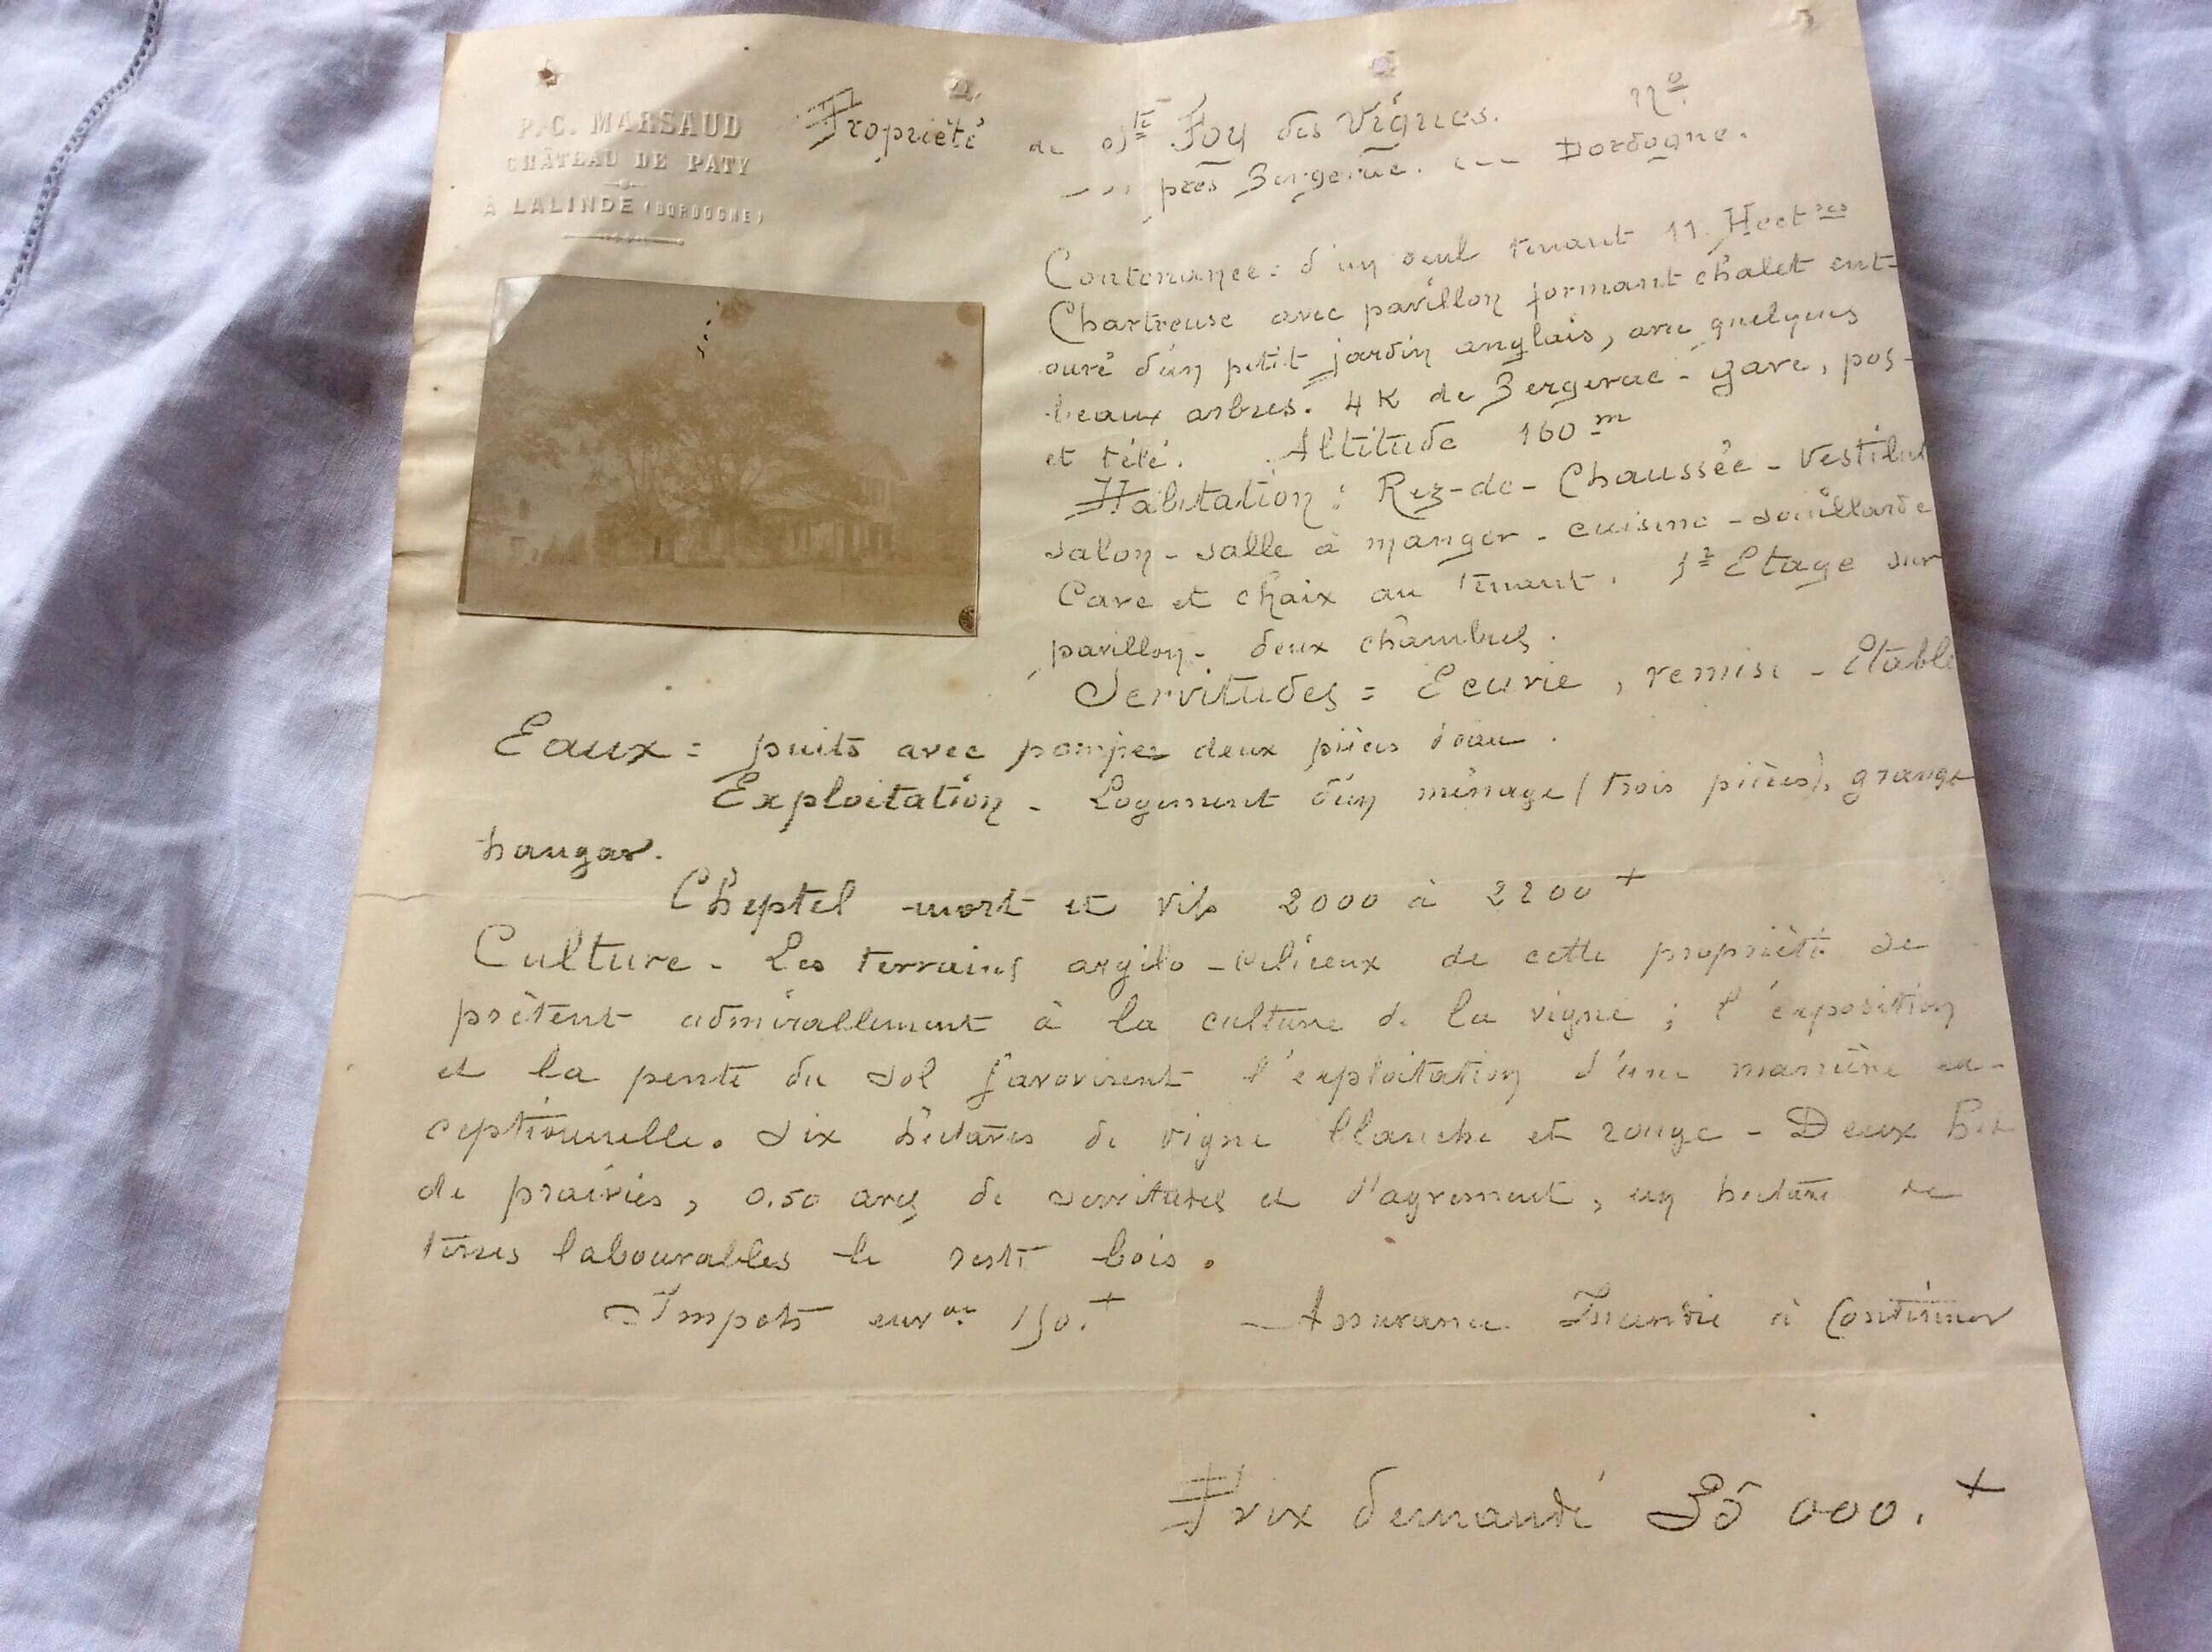 P.C. MARSAUD
CHÂTEAU DE PATY
À LALINDE (DORDOGNE)
Propriété de Ste Foy des Vignes. No
près Bergerac. Dordogne.
Contenance = d'un seul tenant 11 Hectres
Chartreuse avec pavillon formant chalet ent-
ouré d'un petit jardin anglais, avec quelques
beaux arbres. 4 K de Bergerac - gare, pos-
et télé. Altitude 160 m
Habitation : Rez-de-Chaussée - Vestibul
salon - salle à manger - cuisine - souillarde
Cave et chaix au tenant. 1r Etage sur
pavillon - deux chambres.
Servitudes = Ecurie, remise - Etable
Eaux = puits avec pompe deux pièces d'eau.
Exploitation - Logement d'un ménage (trois pièces), grange
hangar.
Cheptel mort et vif 2000 à 2200 +
Culture - Les terrains argilo-siliceux de cette propriété se
prêtent admirablement à la culture de la vigne ; l'exposition
et la pente du sol favorisent l'exploitation d'une manière ex-
ceptionnelle. Six hectares de vigne blanche et rouge - Deux hec
de prairies, 0.50 ares de servitudes et d'agrement, un hectare de
terres labourables le reste bois.
Impots 150. + Assurance Incendie à Continuer
Prix demandé 35 000. +